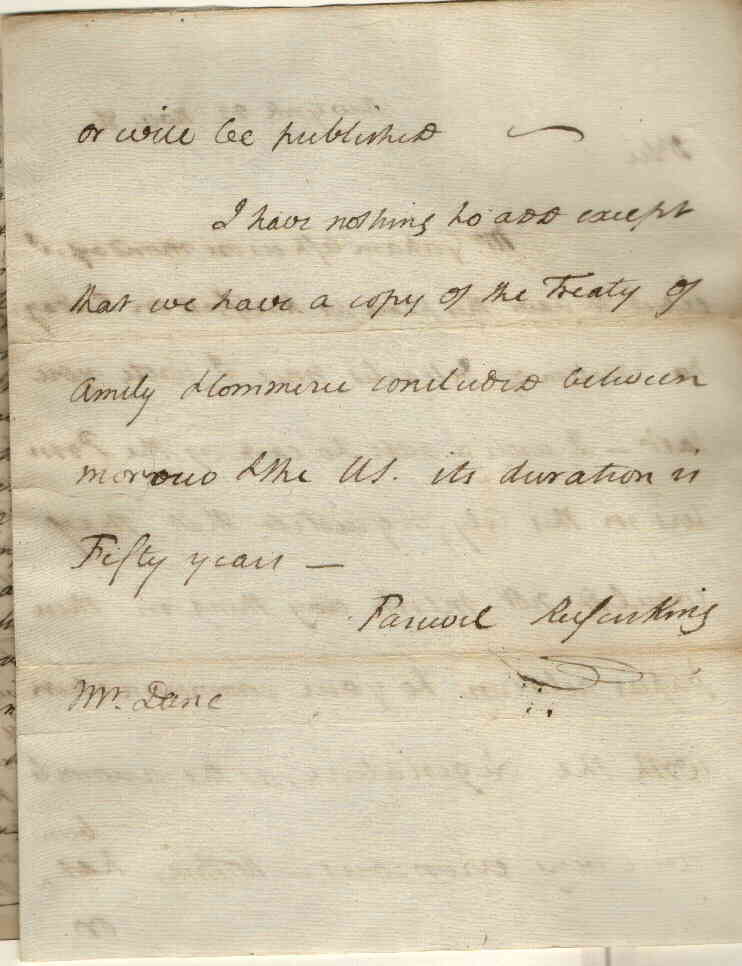 or will be published
I have nothing to add except
that we have a copy of the Treaty of
Amity & Commerce concluded between
morocco & the US. its duration is
Fifty years —
Farwel Rufus King
Mr. Dane